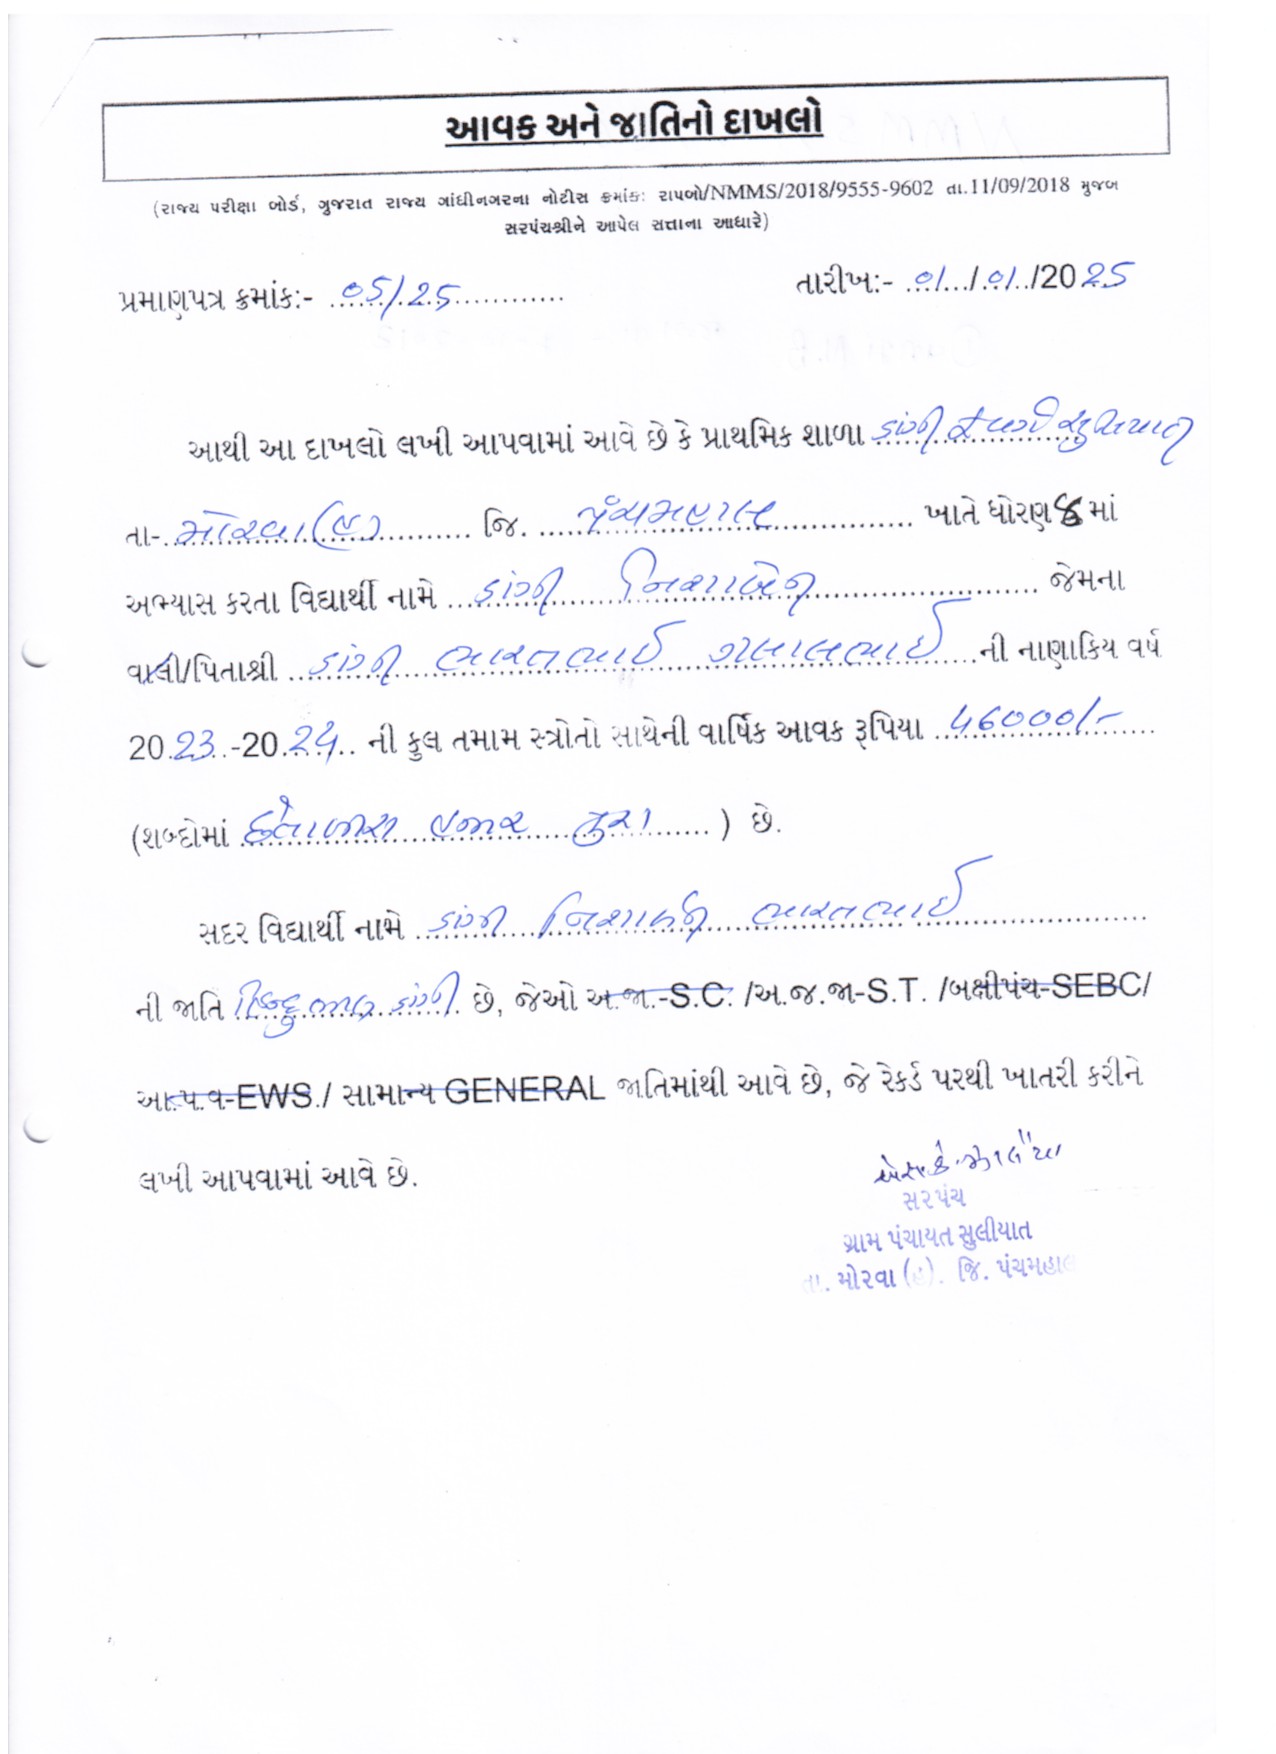 આવક અને જાતિનો દાખલો
(રાજ્ય પરીક્ષા બોર્ડ, ગુજરાત રાજ્ય ગાંધીનગરના નોટીસ ક્રમાંક: રાપબો/NMMS/2018/9555-9602 તા.11/09/2018 મુજબ
સરપંચશ્રીને આપેલ સત્તાના આધારે)
પ્રમાણપત્ર ક્રમાંક:- 05/25 તારીખ:- 01/01/2025
આથી આ દાખલો લખી આપવામાં આવે છે કે પ્રાથમિક શાળા ડાંગી
તા-. મોરવા(હ) જિ. પંચમહાલ ખાતે ધોરણ 8 માં
અભ્યાસ કરતા વિદ્યાર્થી નામે ડાંગી નિશાબેન જેમના
વાલી/પિતાશ્રી ડાંગી ભારતભાઈ ગલાલભાઈ ની નાણાકિય વર્ષ
20.23.-20.24.. ની કુલ તમામ સ્ત્રોતો સાથેની વાર્ષિક આવક રૂપિયા 46000/-
(શબ્દોમાં છેતાળીસ હજાર પુરા ) છે.
સદર વિદ્યાર્થી નામે ડાંગી નિશાબેન ભારતભાઈ
ની જાતિ હિન્દુ ડાંગી છે, જેઓ અ.જા.-S.C. /અ.જ.જા-S.T. /બક્ષીપંચ-SEBC/
આ.પ.વ-EWS./ સામાન્ય GENERAL જાતિમાંથી આવે છે, જે રેકર્ડ પરથી ખાતરી કરીને
લખી આપવામાં આવે છે.
સરપંચ
ગ્રામ પંચાયત સુલીયાત
તા. મોરવા (હ). જિ. પંચમહાલ